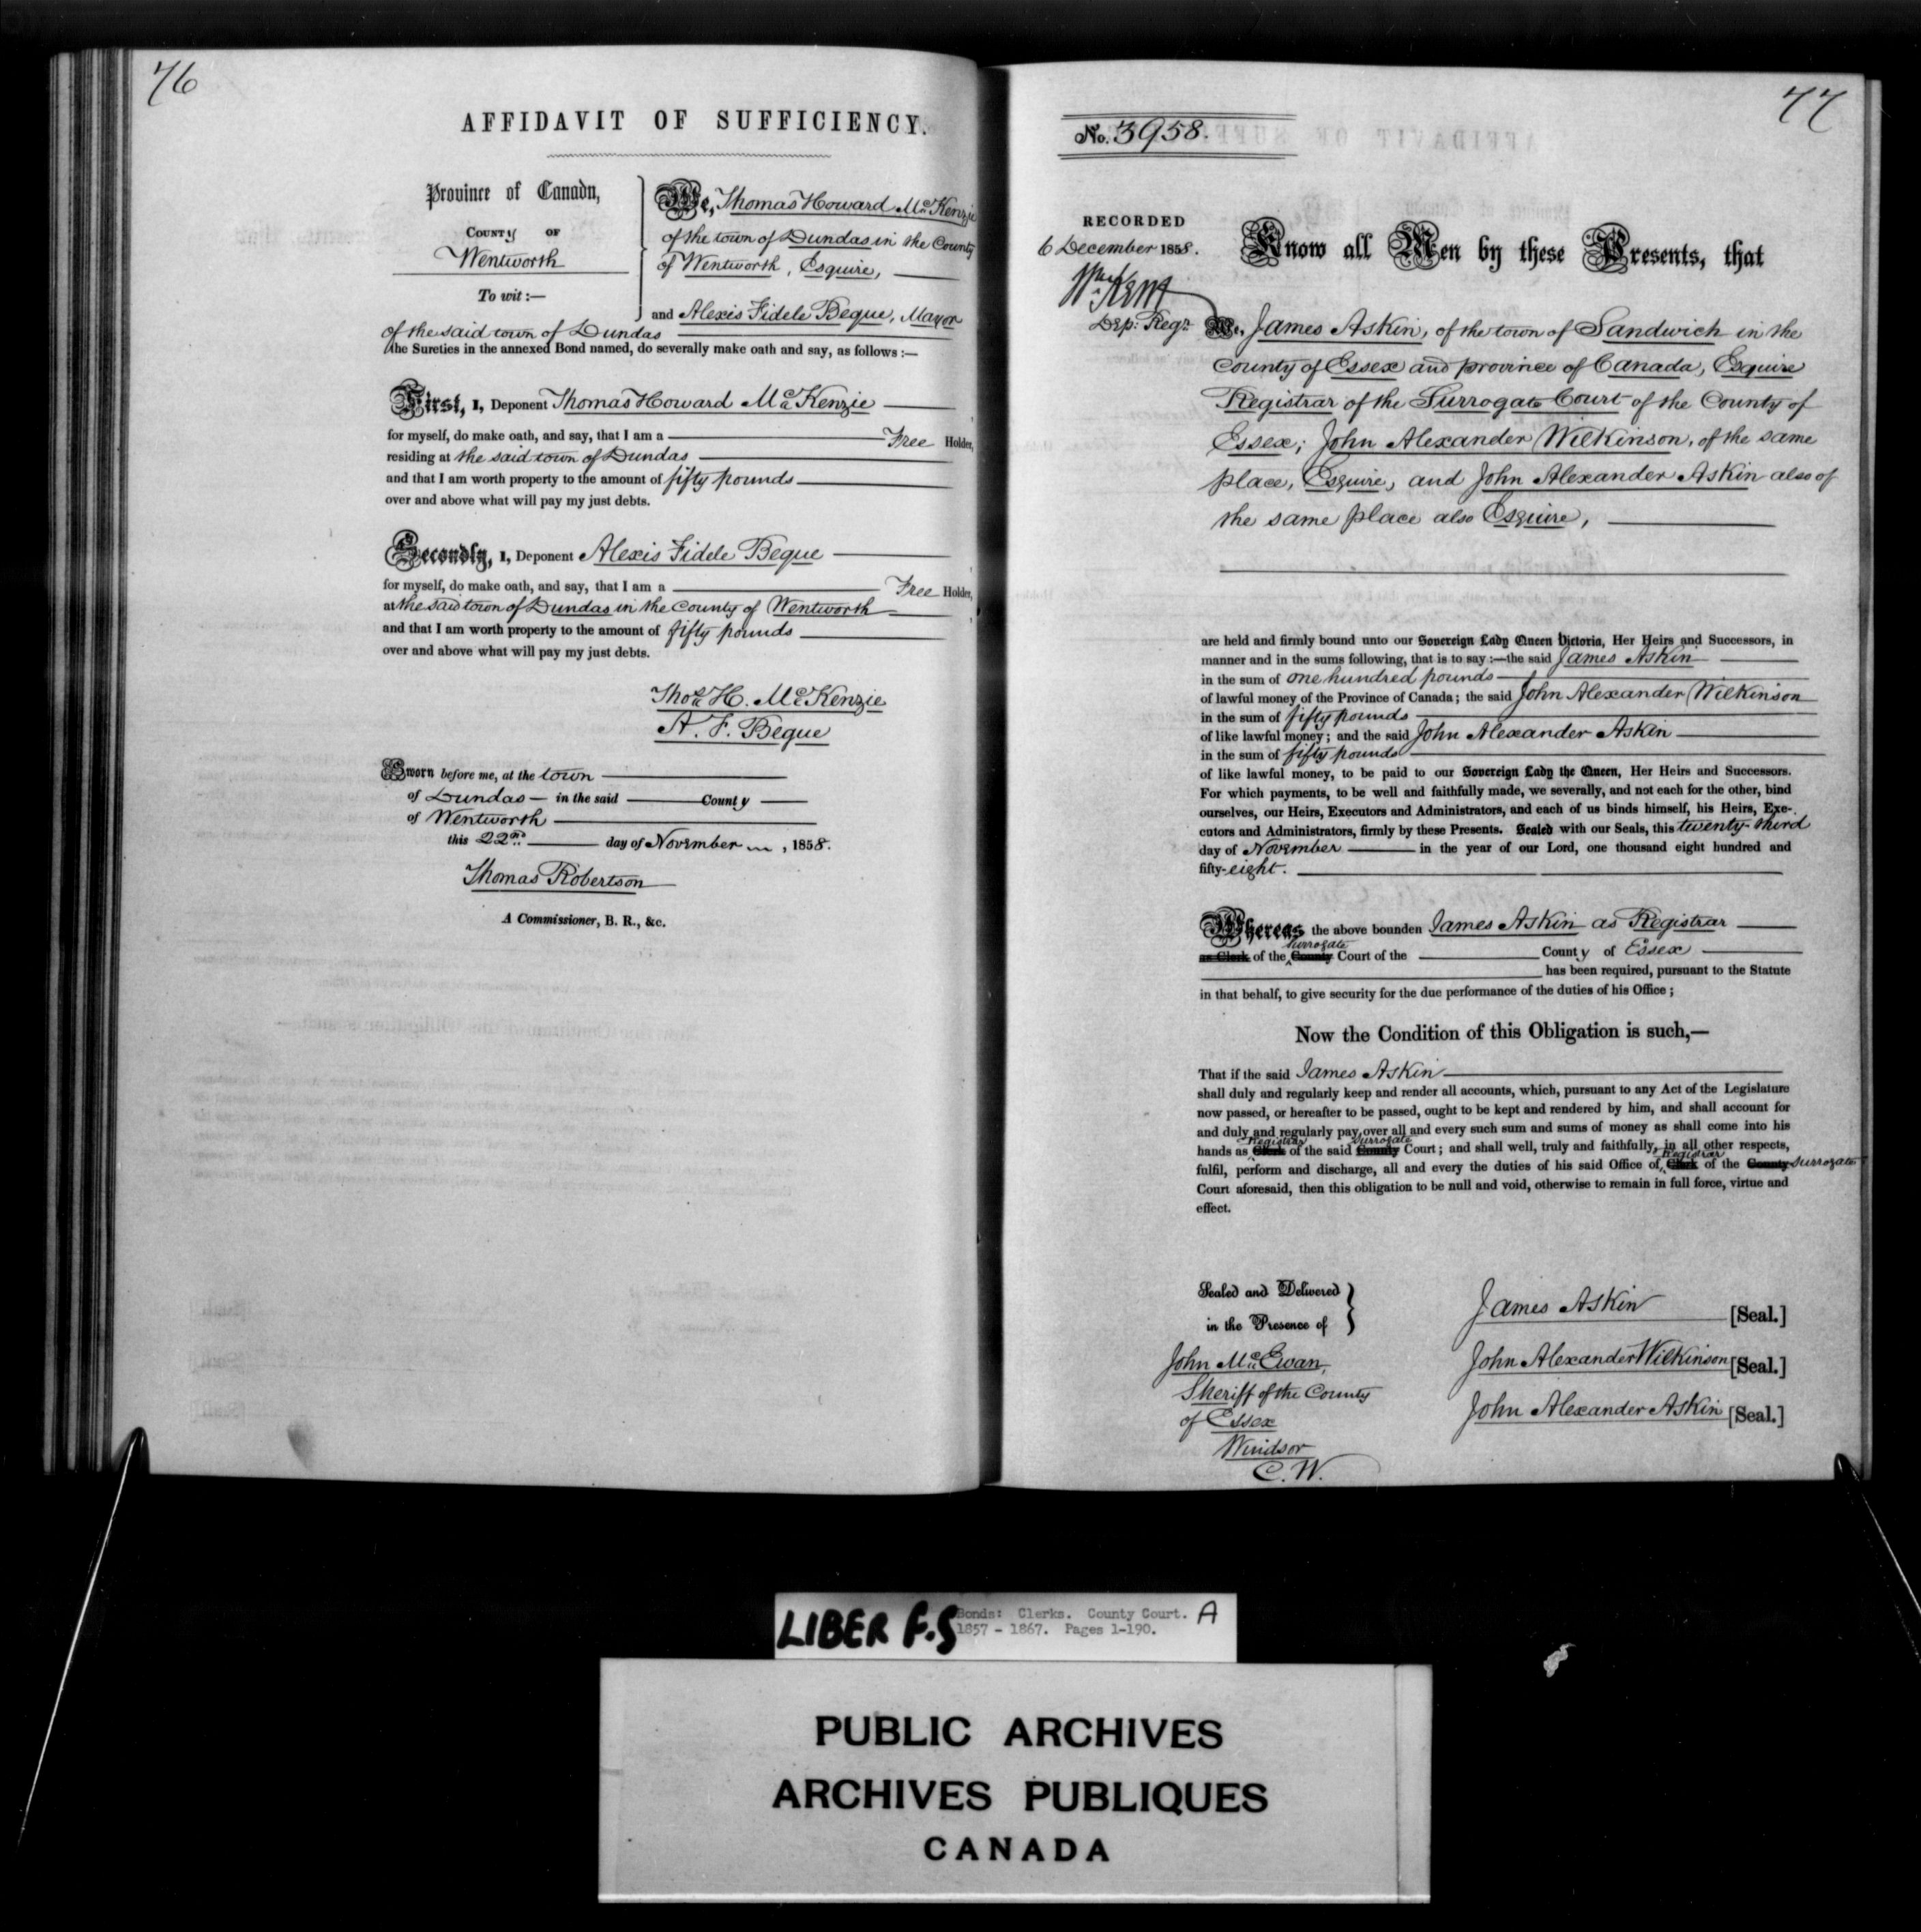 76
AFFIDAVIT OF SUFFICIENCY.
Province of Canada,
COUNTY OF
Wentworth
To wit:—
We, Thomas Howard McKenzie
of the town of Dundas in the County
of Wentworth, Esquire,
and Alexis Fidele Beque, Mayor
of the said town of Dundas
the Sureties in the annexed Bond named, do severally make oath and say, as follows:—
First, I, Deponent Thomas Howard McKenzie
for myself, do make oath, and say, that I am a Free Holder,
residing at the said town of Dundas
and that I am worth property to the amount of fifty pounds
over and above what will pay my just debts.
Secondly, I, Deponent Alexis Fidele Beque
for myself, do make oath, and say, that I am a Free Holder,
at the said town of Dundas in the County of Wentworth
and that I am worth property to the amount of fifty pounds
over and above what will pay my just debts.
Thos H. McKenzie
A. F. Beque
Sworn before me, at the town
of Dundas — in the said County
of Wentworth
this 22nd day of November, 1858.
Thomas Robertson
A Commissioner, B. R., &c.
77
No. 3958.
RECORDED
6 December 1858.
Wm Kent
Dep: Regr
Know all Men by these Presents, that
We, James Askin, of the town of Sandwich in the
County of Essex and province of Canada, Esquire
Registrar of the Surrogate Court of the County of
Essex; John Alexander Wilkinson, of the same
place, Esquire, and John Alexander Askin also of
the same place also Esquire,
are held and firmly bound unto our Sovereign Lady Queen Victoria, Her Heirs and Successors, in
manner and in the sums following, that is to say:—the said James Askin
in the sum of one hundred pounds
of lawful money of the Province of Canada; the said John Alexander Wilkinson
in the sum of fifty pounds
of like lawful money; and the said John Alexander Askin
in the sum of fifty pounds
of like lawful money, to be paid to our Sovereign Lady the Queen, Her Heirs and Successors.
For which payments, to be well and faithfully made, we severally, and not each for the other, bind
ourselves, our Heirs, Executors and Administrators, and each of us binds himself, his Heirs, Exe-
cutors and Administrators, firmly by these Presents. Sealed with our Seals, this twenty-third
day of November in the year of our Lord, one thousand eight hundred and
fifty-eight.
Whereas the above bounden James Askin as Registrar
Surrogate
as Clerk of the County Court of the County of Essex
has been required, pursuant to the Statute
in that behalf, to give security for the due performance of the duties of his Office;
Now the Condition of this Obligation is such,—
That if the said James Askin
shall duly and regularly keep and render all accounts, which, pursuant to any Act of the Legislature
now passed, or hereafter to be passed, ought to be kept and rendered by him, and shall account for
and duly and regularly pay over all and every such sum and sums of money as shall come into his
Registrar Surrogate
hands as Clerk of the said County Court; and shall well, truly and faithfully, in all other respects,
Registrar
fulfil, perform and discharge, all and every the duties of his said Office of Clerk of the County Surrogate
Court aforesaid, then this obligation to be null and void, otherwise to remain in full force, virtue and
effect.
Sealed and Delivered
in the Presence of
John McEwan,
Sheriff of the County
of Essex
Windsor
C. W.
James Askin [Seal.]
John Alexander Wilkinson [Seal.]
John Alexander Askin [Seal.]
LIBER F.S
Bonds: Clerks. County Court. A
1857 - 1867. Pages 1-190.
PUBLIC ARCHIVES
ARCHIVES PUBLIQUES
CANADA